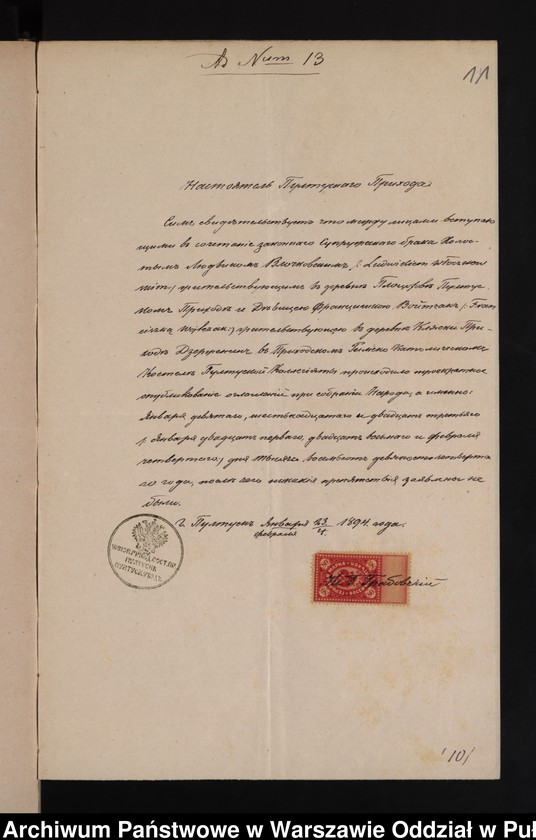 Ad Num 13
11
Настоятель Пултускаго Прихода
Симъ свидѣтельствуетъ что между лицами вступаю
щими въ сочетаніе законнаго Супружескаго брака Холос-
тымъ Людвикомъ Влочковскимъ, /: Ludwikiem
жительствующимъ въ деревнѣ Пултус
комъ Приходѣ и Дѣвицею Францискою Войтчакъ /: Fran
ciszka Wójczak :/ жительствующею въ деревнѣ При-
ходѣ Дзержениѣ, въ Приходскомъ Римско Католическомъ
Костелѣ Пултуской Коллегіяты происходило троекратное
опубликованіе оглашеній при собраніи Народа, а именно:
Января девятаго, шестнадцатаго и двадцать третьяго
/: Января двадцать перваго, двадцать восьмаго и февраля
четвертаго :/ дня тысяча восемьсотъ девяносто четверта
го года, послѣ чего никакія препятствія заявлены не
были.
Г. Пултускъ Января 23/4 1894 года.
Февраля
Грабовскій
МАРКА
10/
Archiwum Państwowe w Warszawie Oddział w Puł